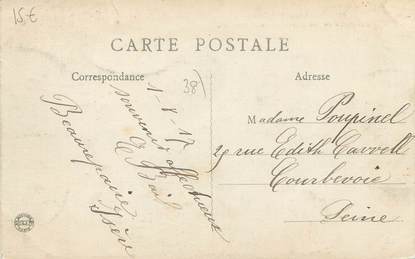 15,€
CARTE POSTALE
Correspondance
Adresse
38
1-8-17
souvenir affectueux
E Bail
Beaurepaire
Isère
Madame Poupinel
29 rue Edith Cavell
Courbevoie
Seine